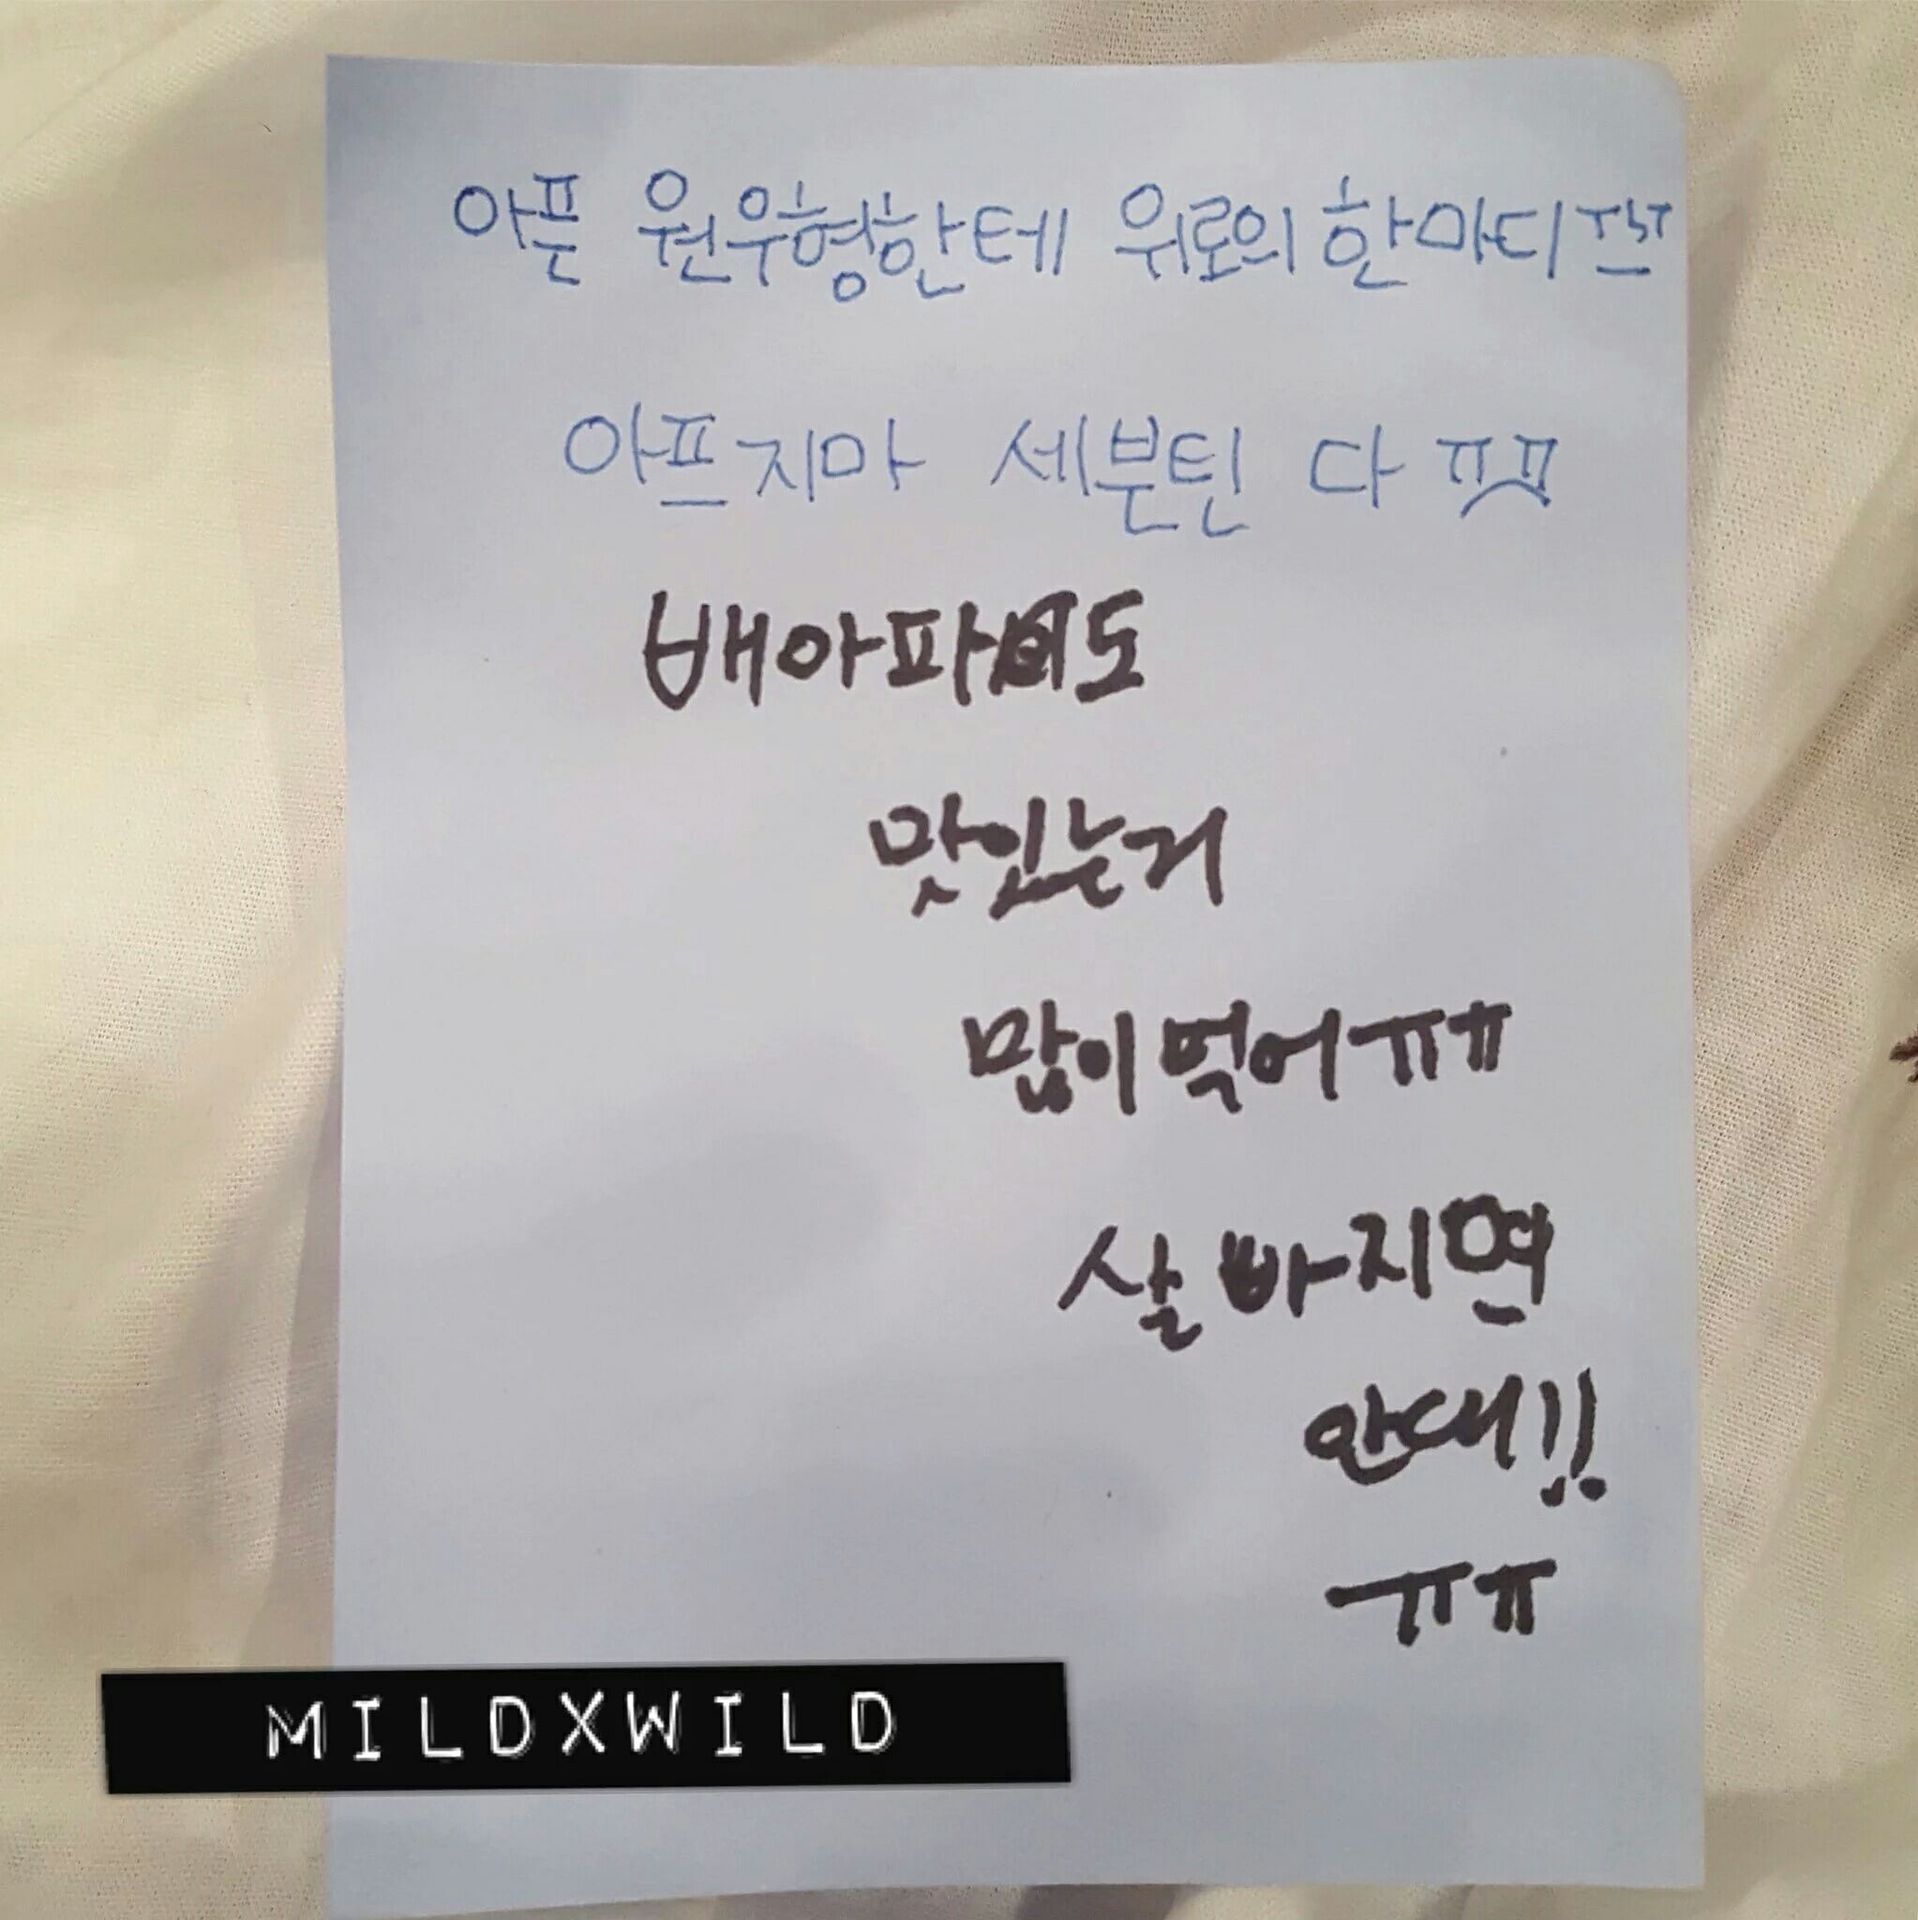 아픈 원우형한테 위로의 한마디 ㅠㅠ
아프지마 세븐틴 다 ㅠㅠ
배아파도
맛있는거
많이 먹어 ㅠㅠ
살 빠지면
안대!!
ㅠㅠ
MILDXWILD